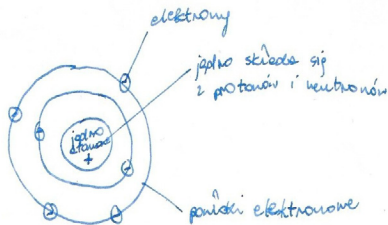 elektrony
jądro składa się
z protonów i neutronów
jądro
atomowe
+
powłoki elektronowe